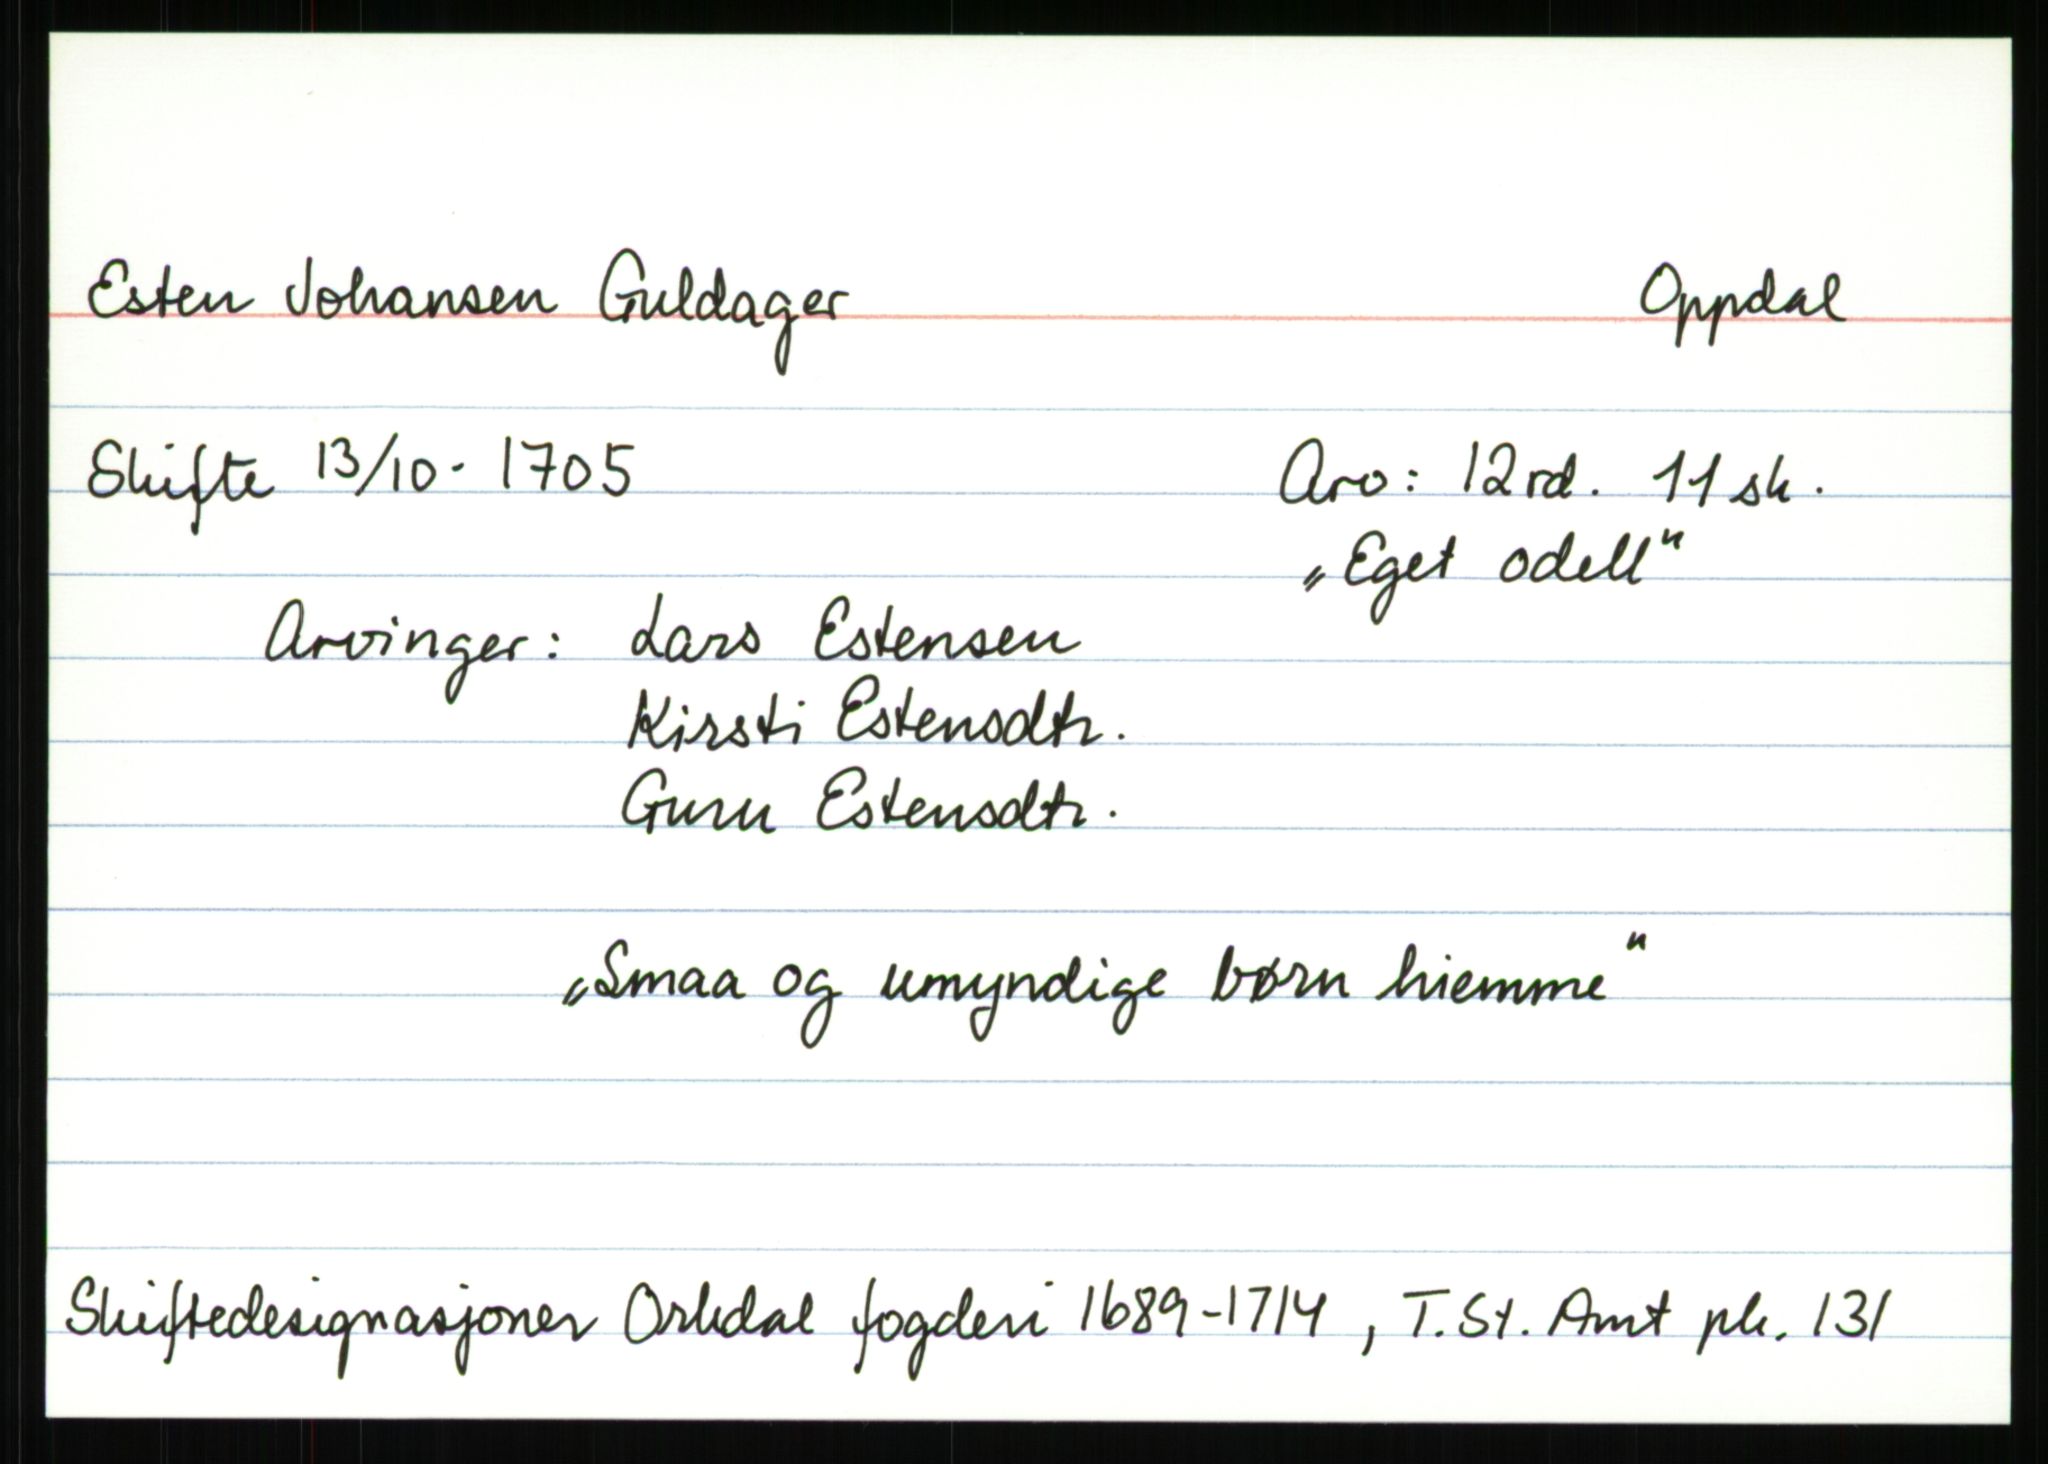 Esten Johansen Guldager Oppdal
Skifte 13/10 - 1705 Arv: 12 rd. 11 sk.
„Eget odell“
Arvinger: Lars Estensen
Kirsti Estensdtr.
Guru Estensdtr.
„Smaa og umyndige børn hiemme“
Skiftedesignasjoner Orkdal fogderi 1689-1714, T. St. Amt pk. 131